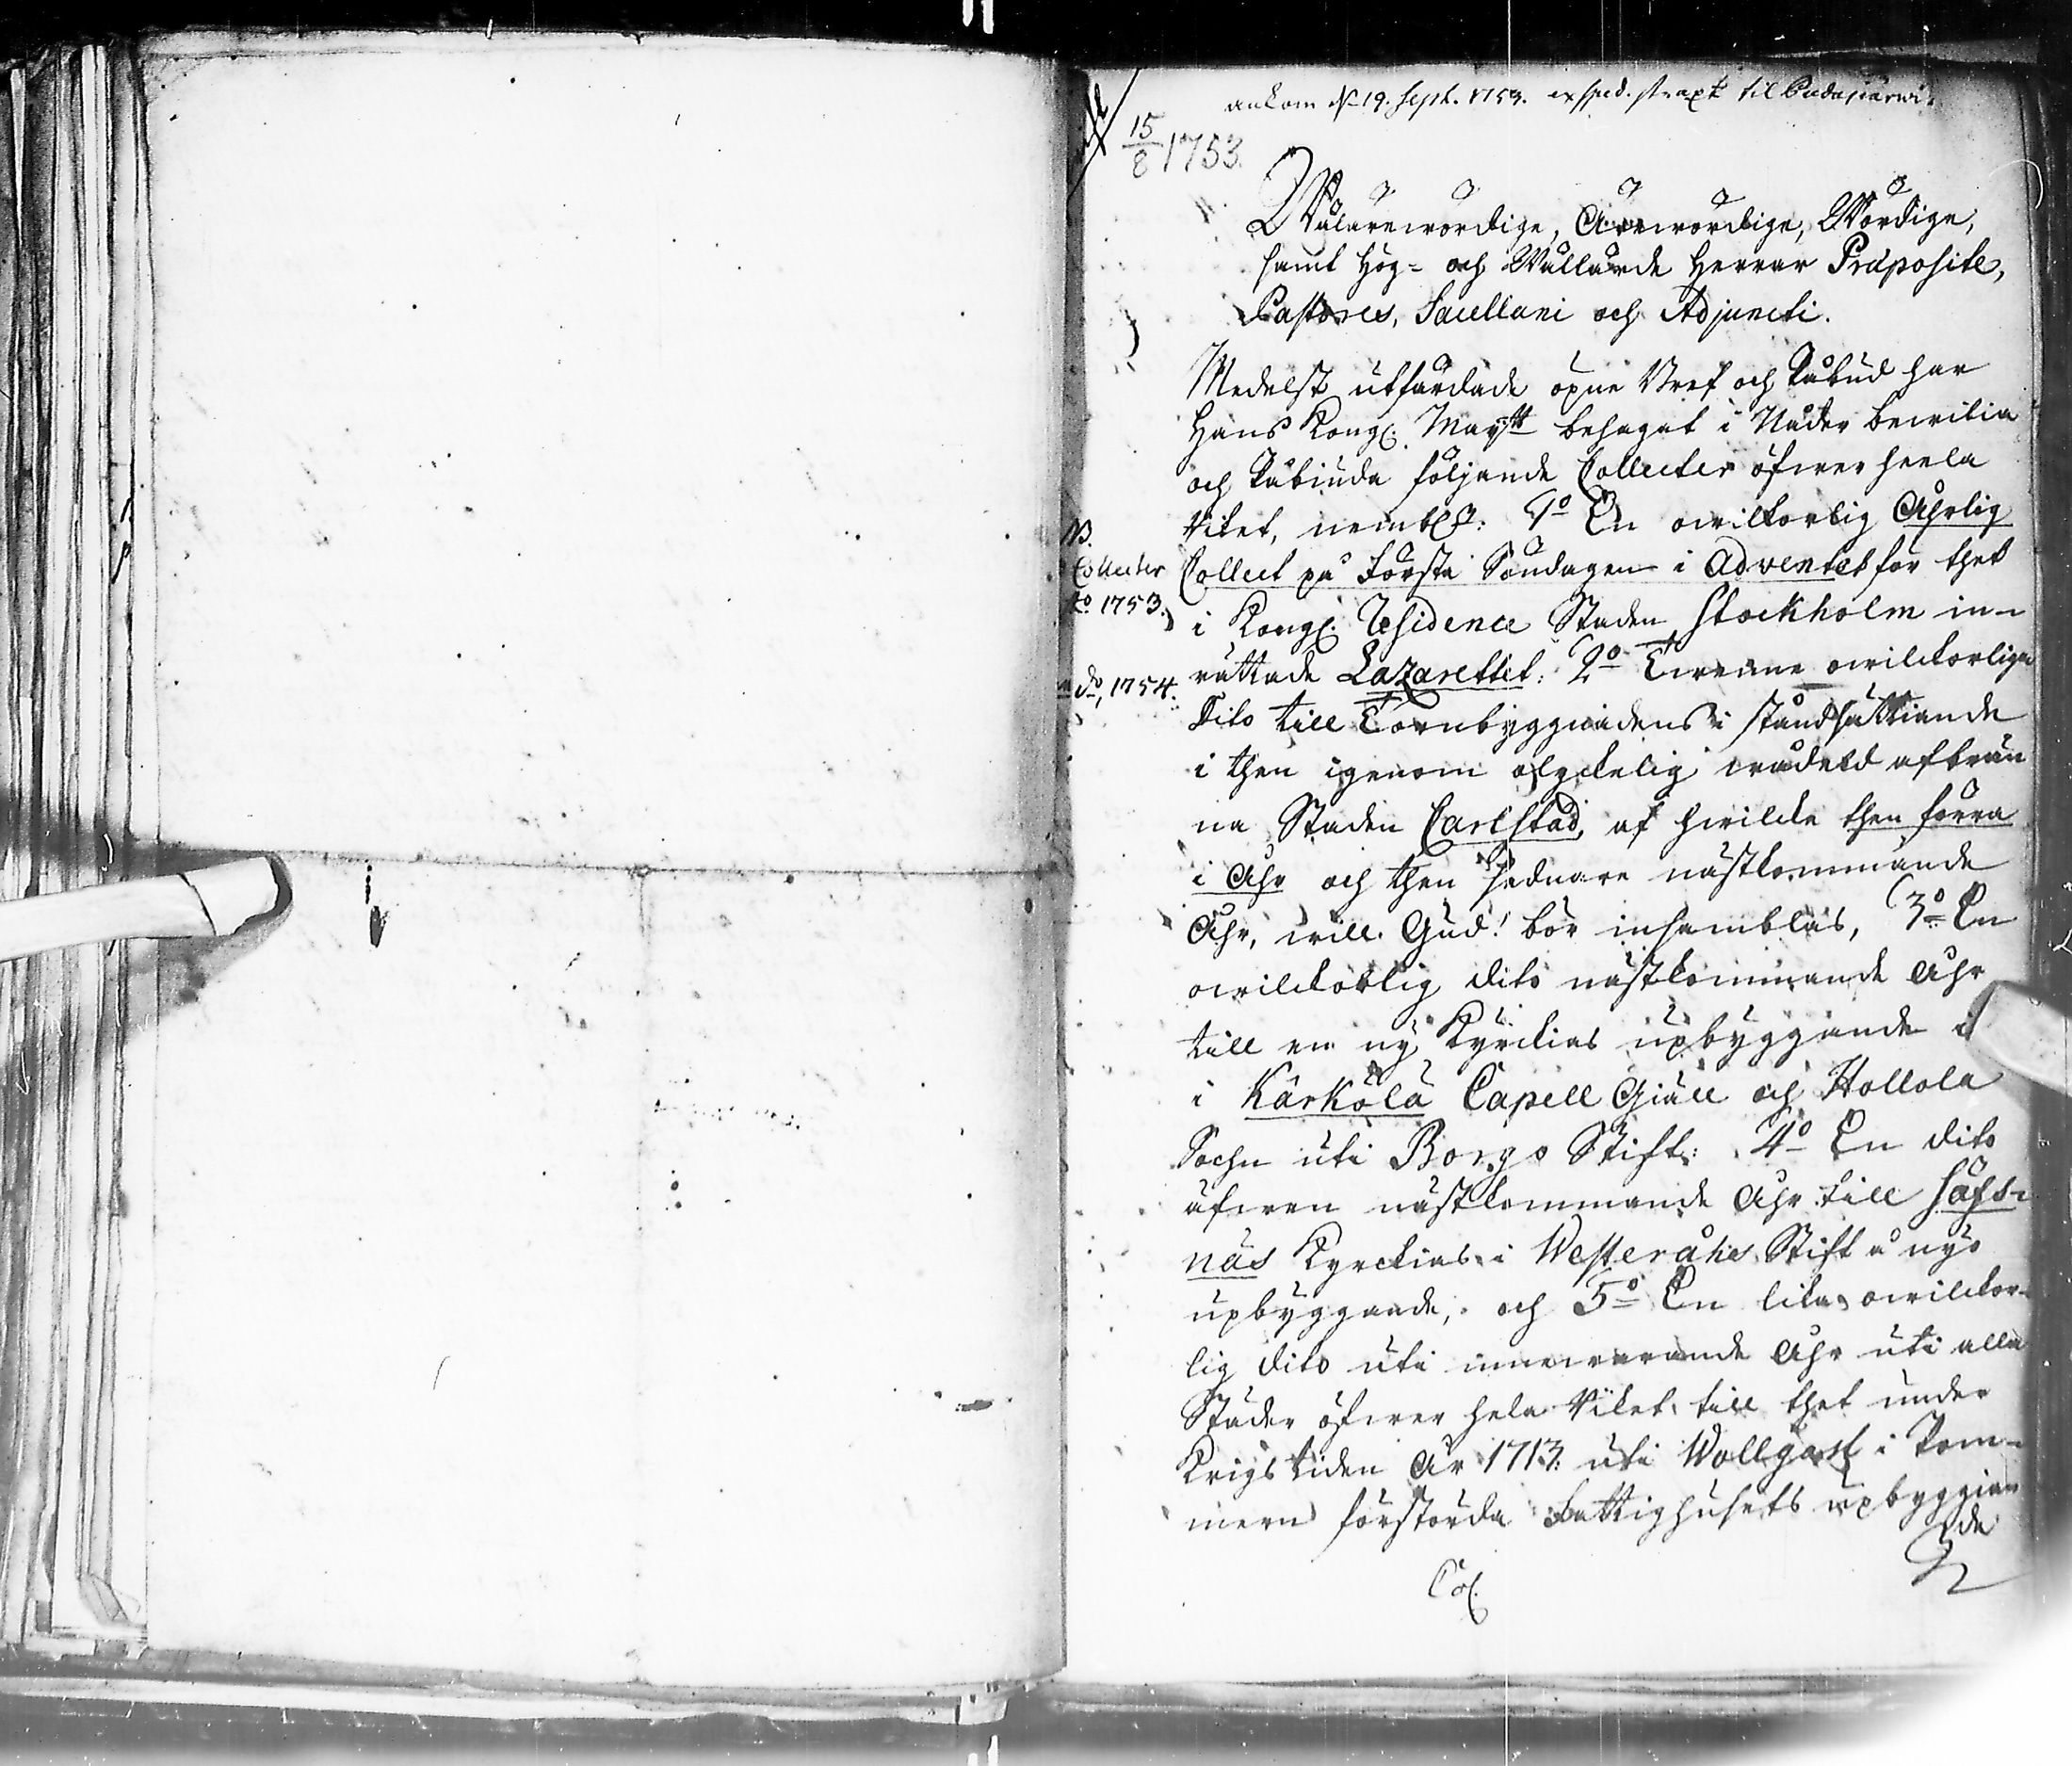 ankom d. 19. Sept. 1753. exped. straxt til Pudasjärwi.
15/8 1753.
Wälärewördige, Ärewördige, Wördige,
samt Hög- och Wällärde Herrar Præposite,
Pastores, Sacellani och Adjuncti.
Medelst utfärdade öpne Bref och Påbud har
Hans Kongl. Maijtt behagat i Nåder bewilia
och Påbiuda följande Collecter öfwer heela
Riket, nembl: 1o En owilkorlig Åhrlig
NB.
Collecter
Ao 1753.
Collect på Första Söndagen i Adventet för thet
i Kongl. Residence Staden Stockholm in-
rättade Lazarettet: 2o Twenne owilckorliga
do, 1754.
Dito till Tornbyggnadens i ståndsättiande
i then igenom olyckelig wådeld afbrän
na Staden Carlstad, af hwilcka then förra
i Åhr och then sednare nästkommande
Åhr, will Gud! bör insamblas, 3o En
owilckorlig dito nästkommande Åhr
till en ny Kyrckias upbyggande
i Kärkölä Capell Giäll och Hollola
Sochn uti Borgo Stift: 4o En dito
äfwen nästkommande Åhr till Säfs-
näs Kyrckias i Westeråhs Stift å nyo
upbyggande, och 5o En lika owilckor-
lig dito uti innewarande Åhr uti alla
Städer öfwer hela Riket till thet under
Krigstiden År 1713: uti Wollgast i Pom-
mern förstörda Fattighusets upbyggian
de
Col.